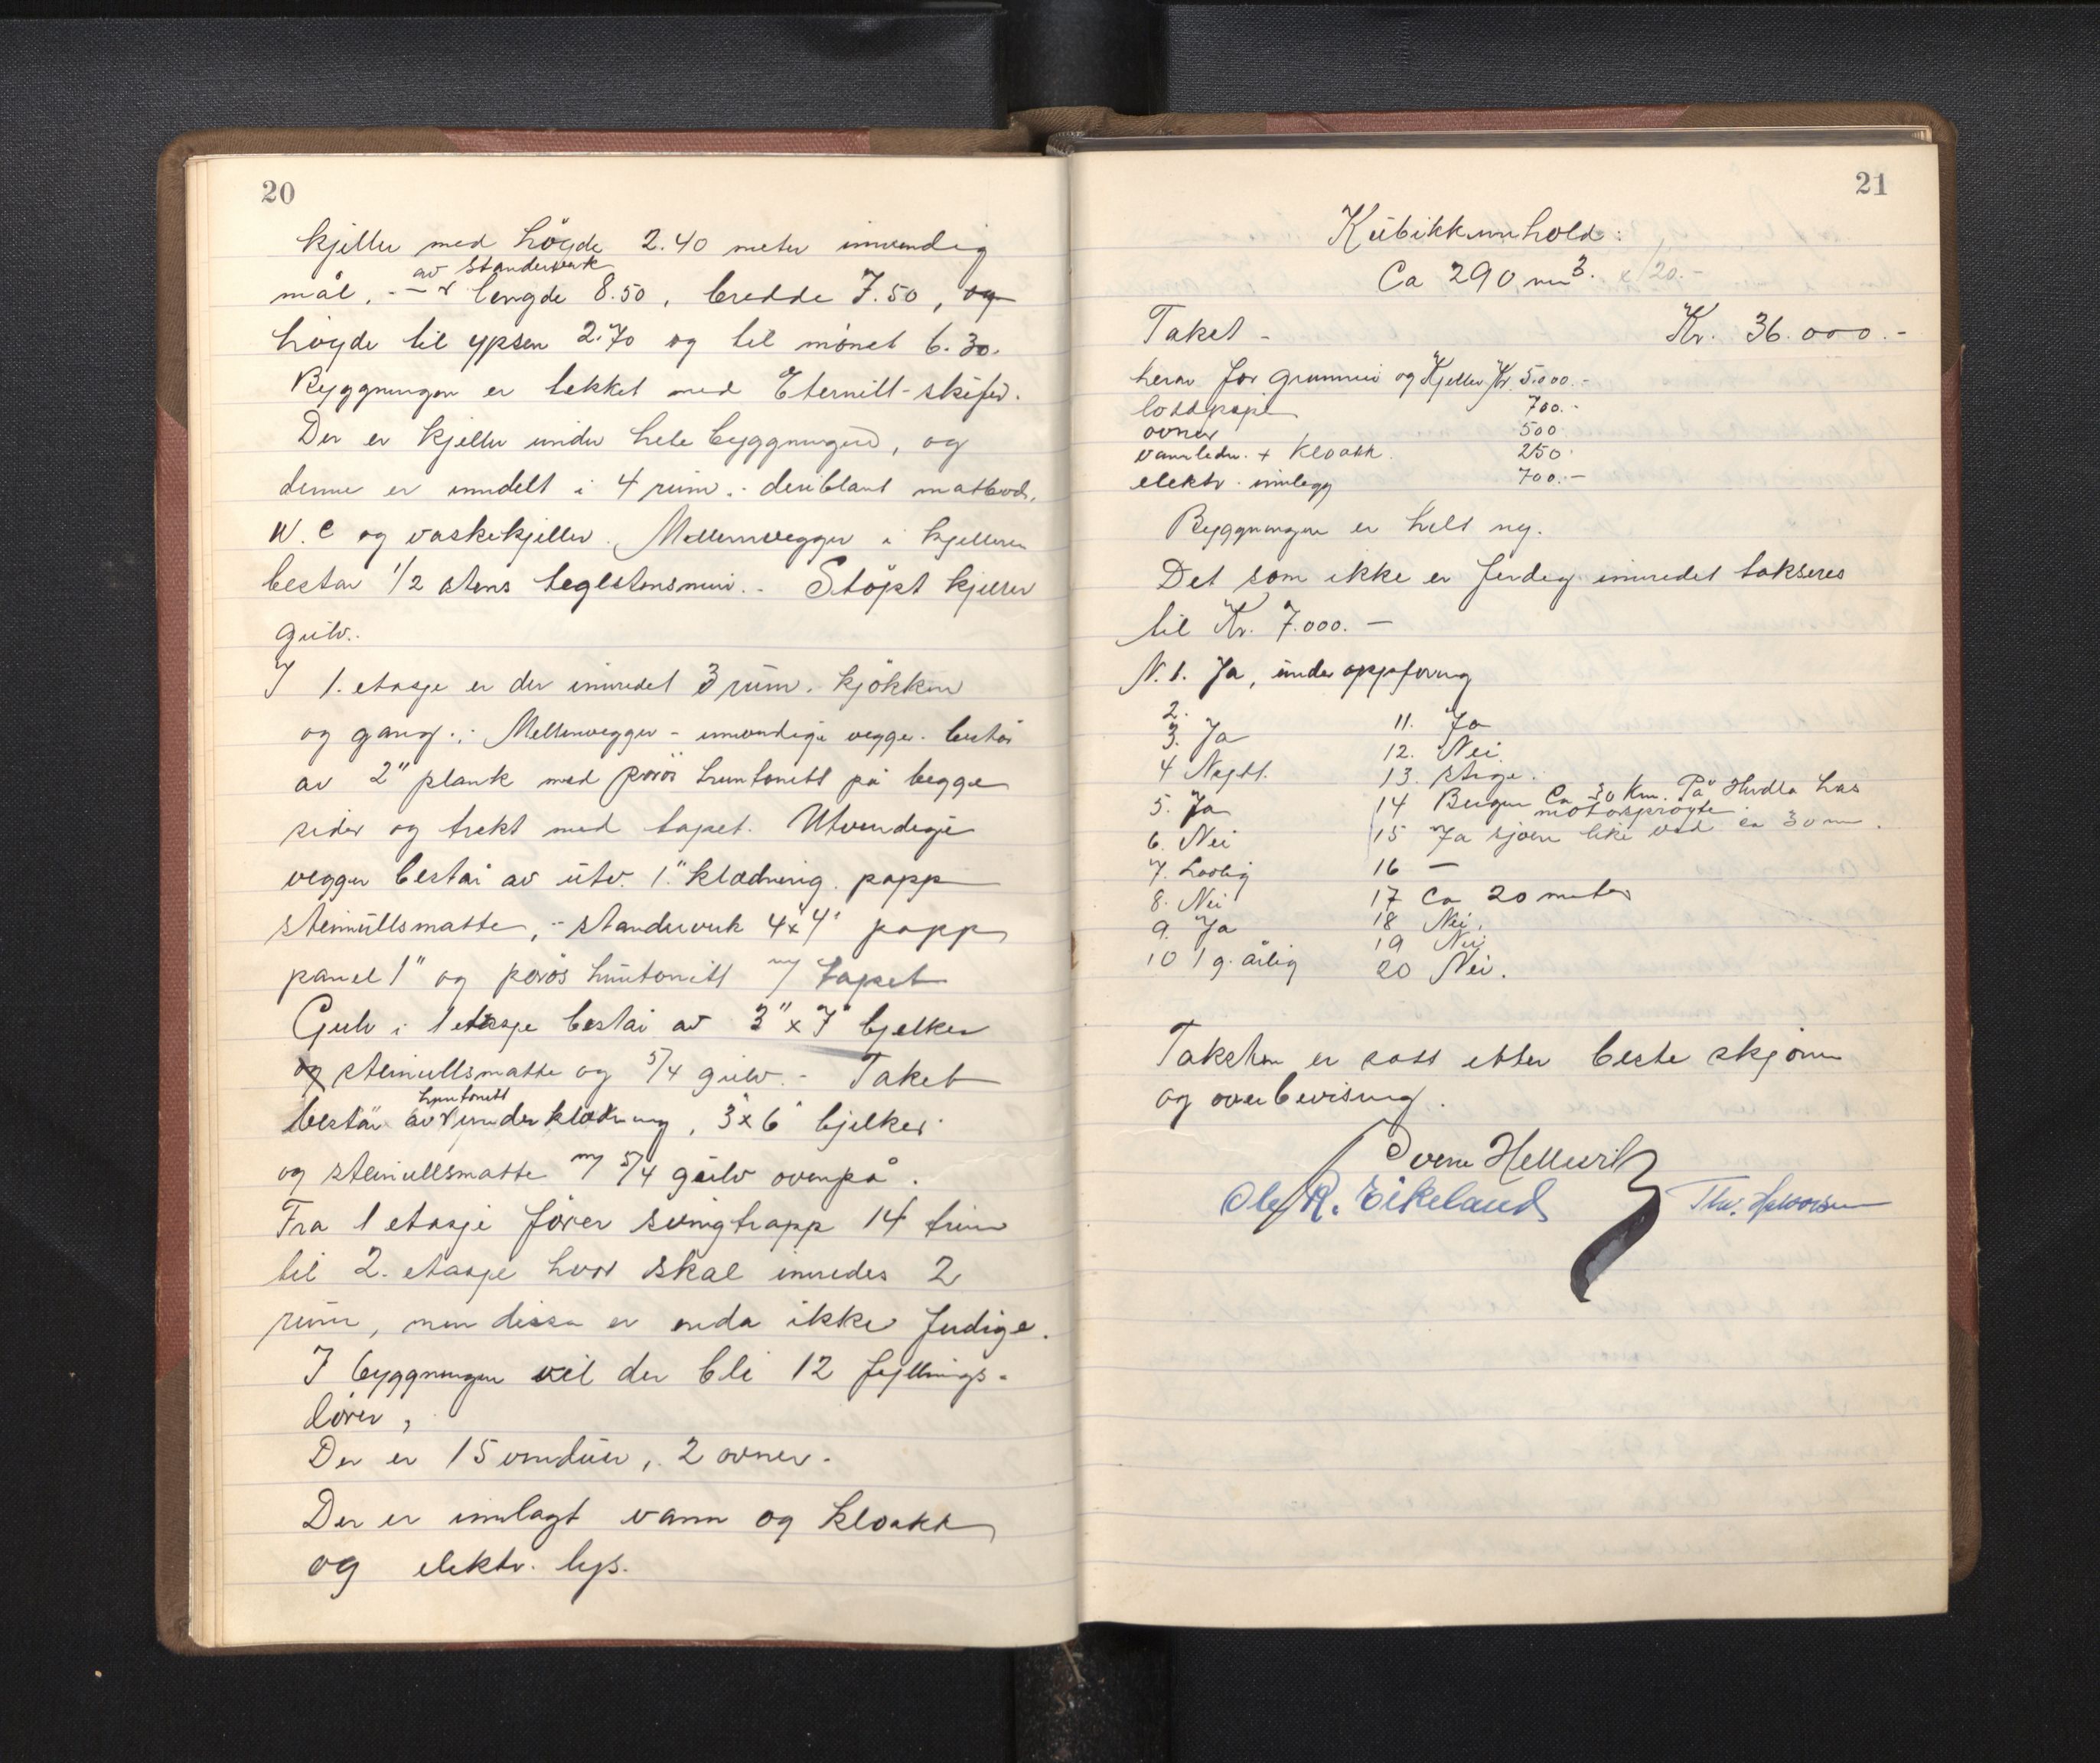 20
kjeller med höyde 2.40 meter innvendig
av standerverk
mål. - lengde 8.50, bredde 7.50, og
höyde til ypsen 2.70 og til mönet 6.30.
Byggningen er tekket med Eternitt-skifer.
Der er kjeller under hele byggningen, og
denne er inndelt i 4 rum. - deriblant matbod,
W.C og vaskekjeller. Mellemvegger i kjelleren
bestar 1/2 stens teglstensmur. - Stöpt kjeller
gulv.
I 1. etasje er der innredet 3 rum. kjökken
og gang. - Mellemvegger - innvendige vegger. består
av 2" plank med porös huntonitt på begge
sider og trekt med tapet. Utvendige
vegger består av utv. 1" klædning. papp
steinullsmatte, - standerverk 4"x4" papp
panel 1" og porös huntonitt m/ tapet
Gulv i 1 etasje består av 3"x7" bjelker
og steinullsmatte og 5/4 gulv. - Taket
huntonitt
består av underklædning, 3"x6" bjelker
og steinullsmatte m/ 5/4 gulv ovenpå.
Fra 1 etasje förer svingtrapp 14 trin
til 2. etasje hvor skal innredes 2
rum, men disse er enda ikke ferdige.
I byggningen vil der bli 12 fyllings-
dörer,
Der er 15 vinduer, 2 ovner.
Der er innlagt vann og kloakk
og elektr. lys.
21
Kubikkinnhold:
Ca 290 m3. x 20.-
Takst - Kr. 36.000.-
herav for grunnmur og Kjeller Kr. 5.000.-
loddpipe 700.-
ovner 500
vannledn. + Kloakk. 250
elektr. innlegg 700.-
Byggningen er helt ny.
Det som ikke er ferdig innredet takseres
til Kr. 7.000. -
N. 1. Ja, under oppföring
2.
3. Ja
4 Nøytl.
5. Ja
6. Nei
7. Lovlig
8. Nei
9. Ja
10 1 g. årlig
11. Ja
12. Nei
13. stige.
14 Bergen Ca 30 Km. På Herdla has
motorspröyte
15 Ja sjöen like ved ca 30 m.
16 -
17 Ca 20 meter
18 Nei.
19 Nei
20 Nei.
Taksten er satt etter beste skjönn
og overbevisning.
Sverre Hellesvik
Ole R. Eikeland
Thv. Halvorsen